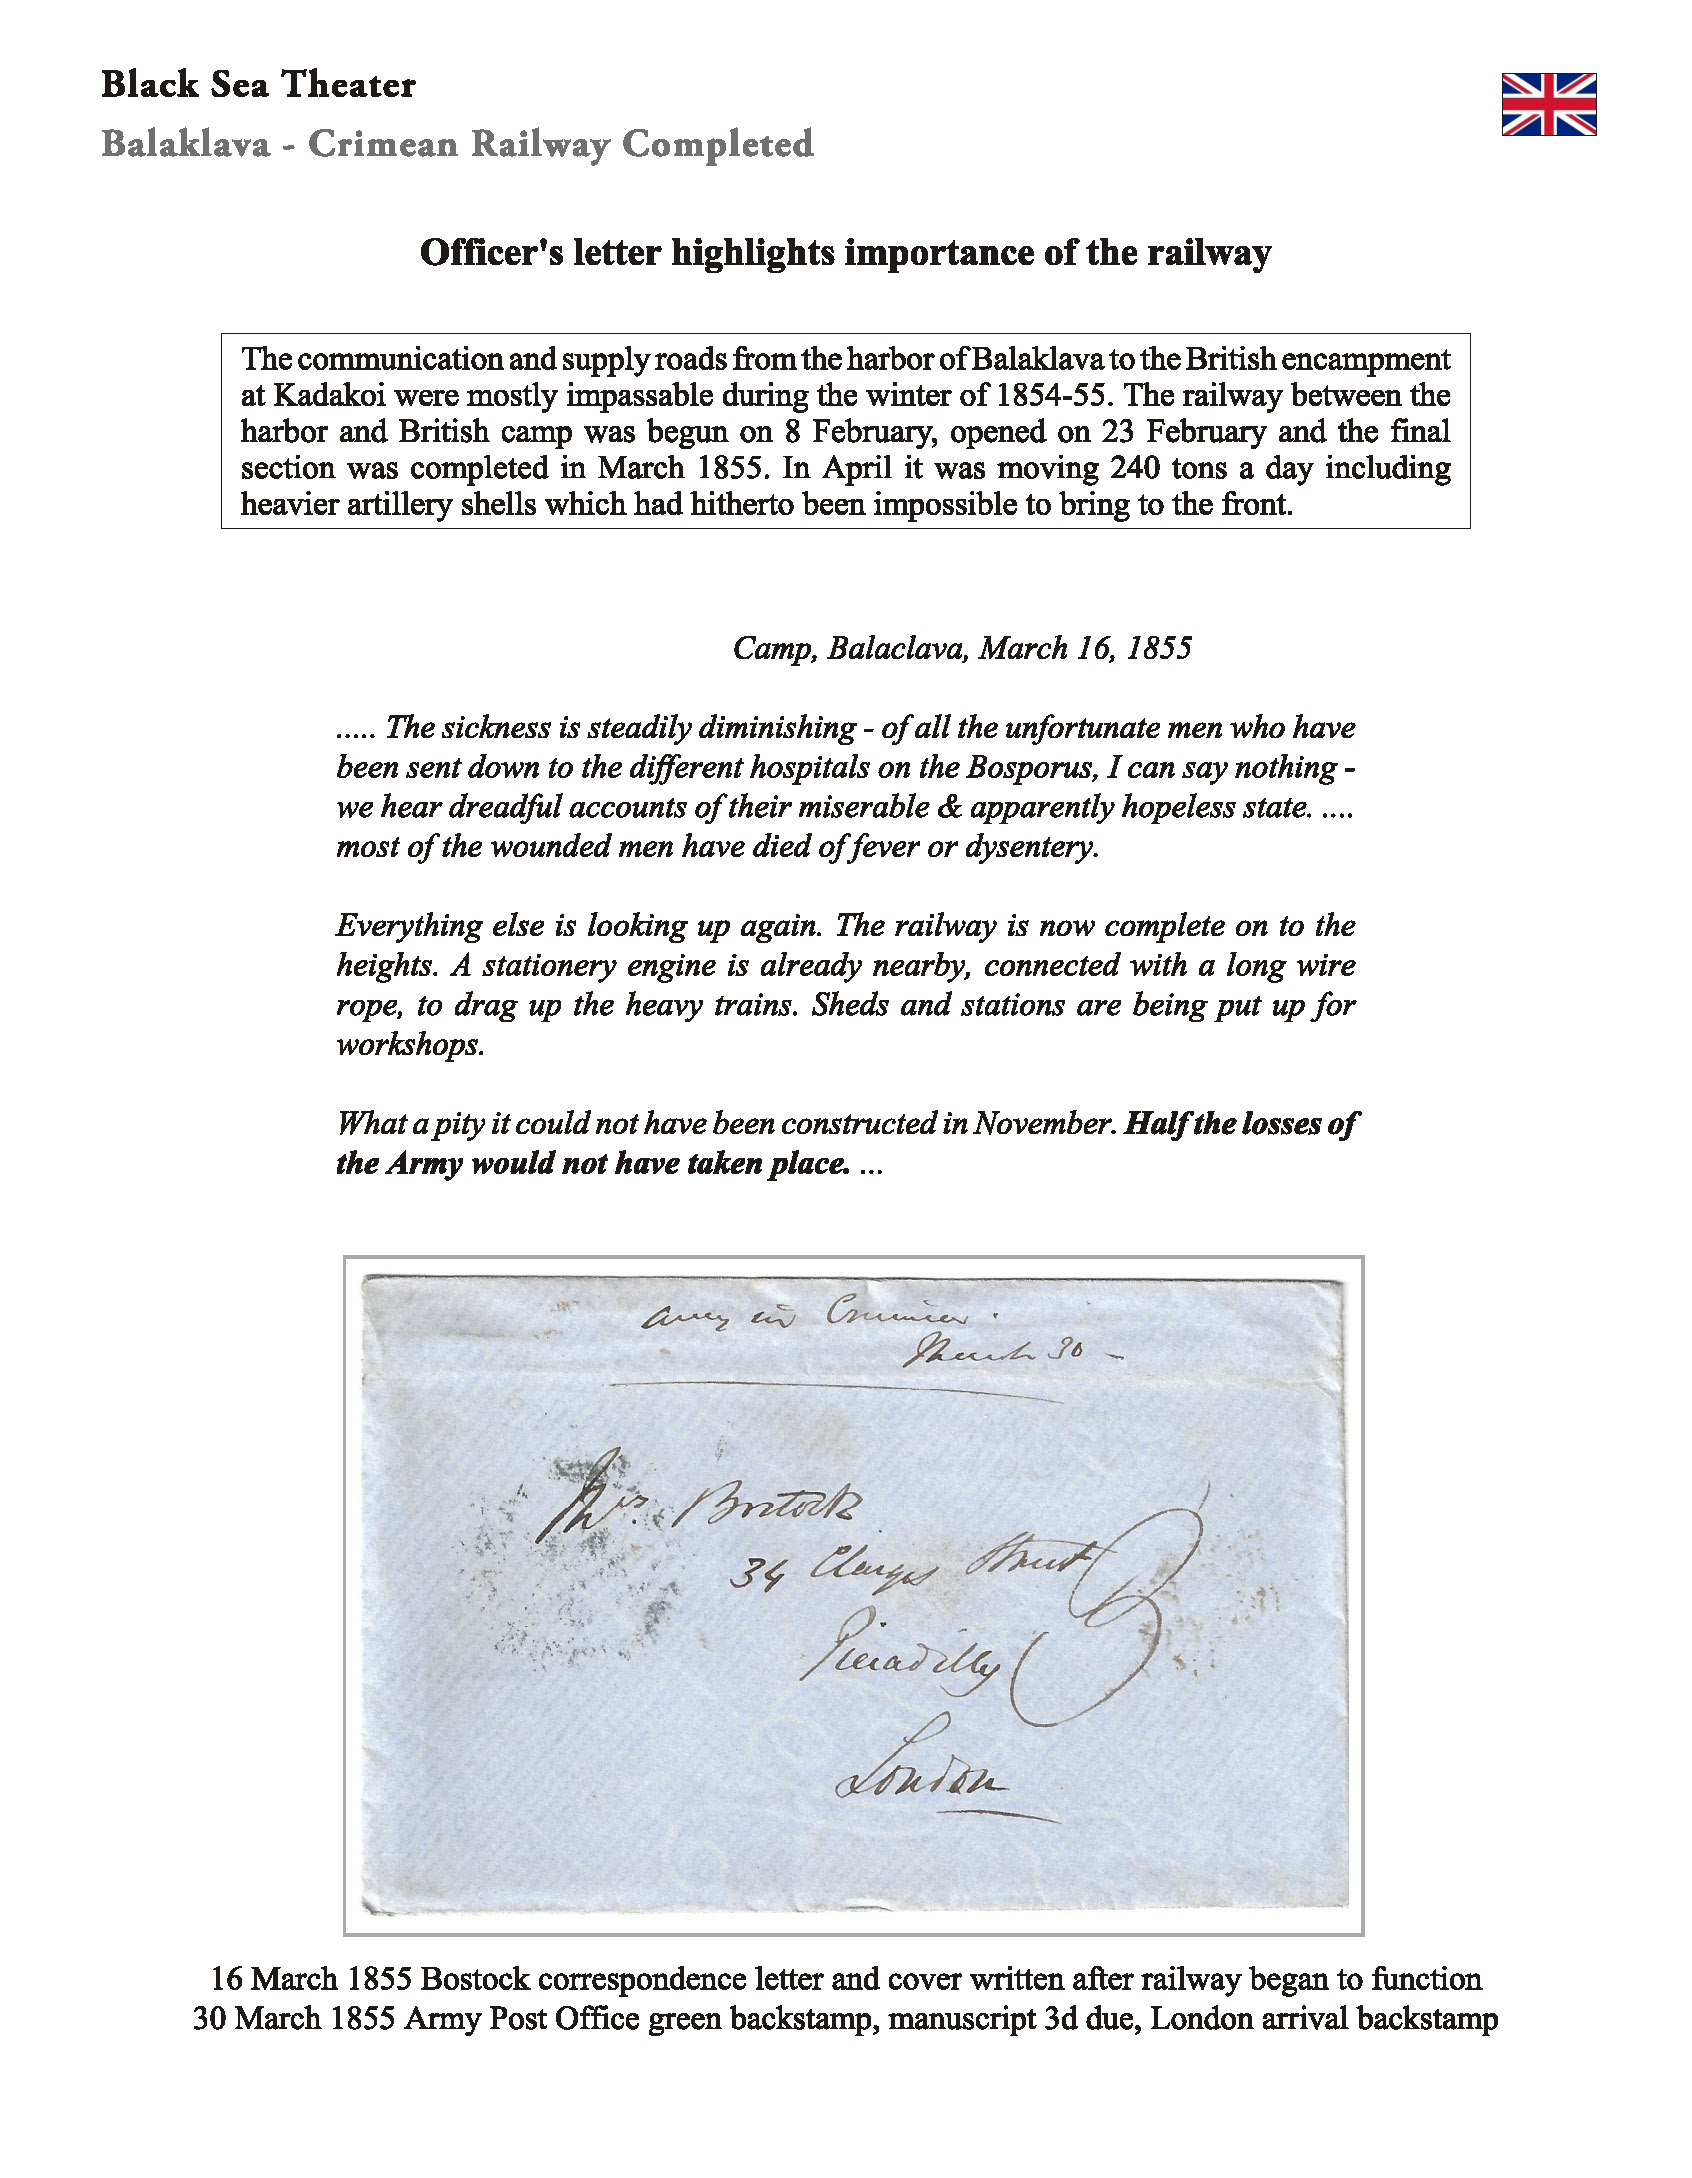 Black Sea Theater
Balaklava - Crimean Railway Completed
Officer's letter highlights importance of the railway
The communication and supply roads from the harbor of Balaklava to the British encampment
at Kadakoi were mostly impassable during the winter of 1854-55. The railway between the
harbor and British camp was begun on 8 February, opened on 23 February and the final
section was completed in March 1855. In April it was moving 240 tons a day including
heavier artillery shells which had hitherto been impossible to bring to the front.
Camp, Balaclava, March 16, 1855
..... The sickness is steadily diminishing - of all the unfortunate men who have
been sent down to the different hospitals on the Bosporus, I can say nothing -
we hear dreadful accounts of their miserable & apparently hopeless state. ....
most of the wounded men have died of fever or dysentery.
Everything else is looking up again. The railway is now complete on to the
heights. A stationery engine is already nearby, connected with a long wire
rope, to drag up the heavy trains. Sheds and stations are being put up for
workshops.
What a pity it could not have been constructed in November. Half the losses of
the Army would not have taken place. ...
Army in Crimea.
March 30 -
Mrs. Bostock
34 Clarges Street
Piccadilly
London
16 March 1855 Bostock correspondence letter and cover written after railway began to function
30 March 1855 Army Post Office green backstamp, manuscript 3d due, London arrival backstamp